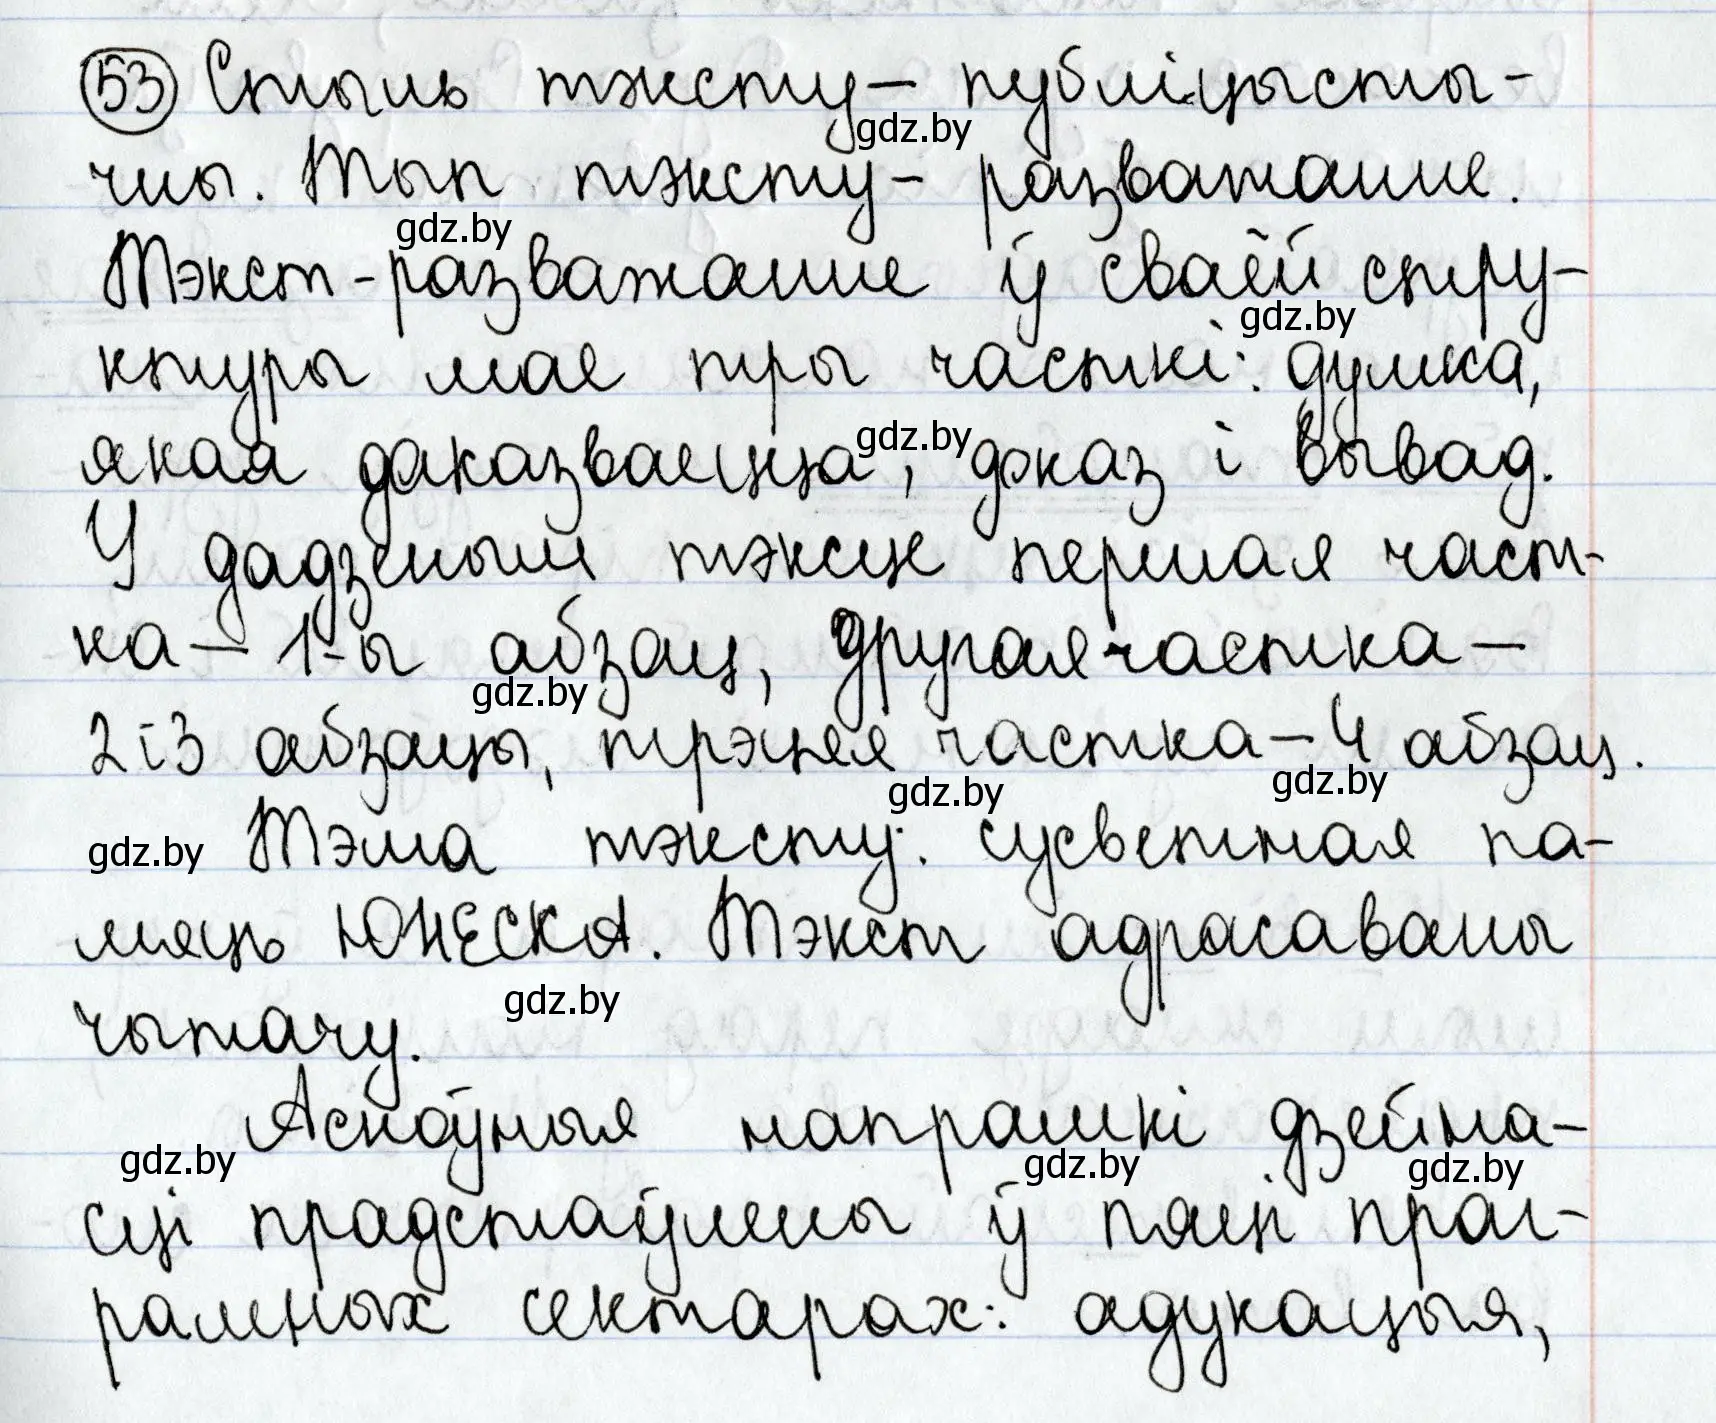 53 Стыль тэксту – публіцысты-
gdz.by
чны. Тып тэксту – разважанне.
gdz.by
Тэкст-разважанне ў сваёй стру-
gdz.by
ктуры мае тры часткі: думка,
якая даказваецца, доказ і вывад.
gdz.by
У дадзеным тэксце першая част-
ка – 1-ы абзац, другая частка –
gdz.by
2 і 3 абзацы, трэцяя частка – 4 абзац.
gdz.by gdz.by
gdz.by Тэма тэксту: сусветная па-
мяць ЮНЕСКА. Тэкст адрасаваны
gdz.by
чытачу.
Асноўныя напрамкі дзейна-
gdz.by gdz.by gdz.by
сці прадстаўлены ў пяці праг-
рамных сектарах: адукацыя,